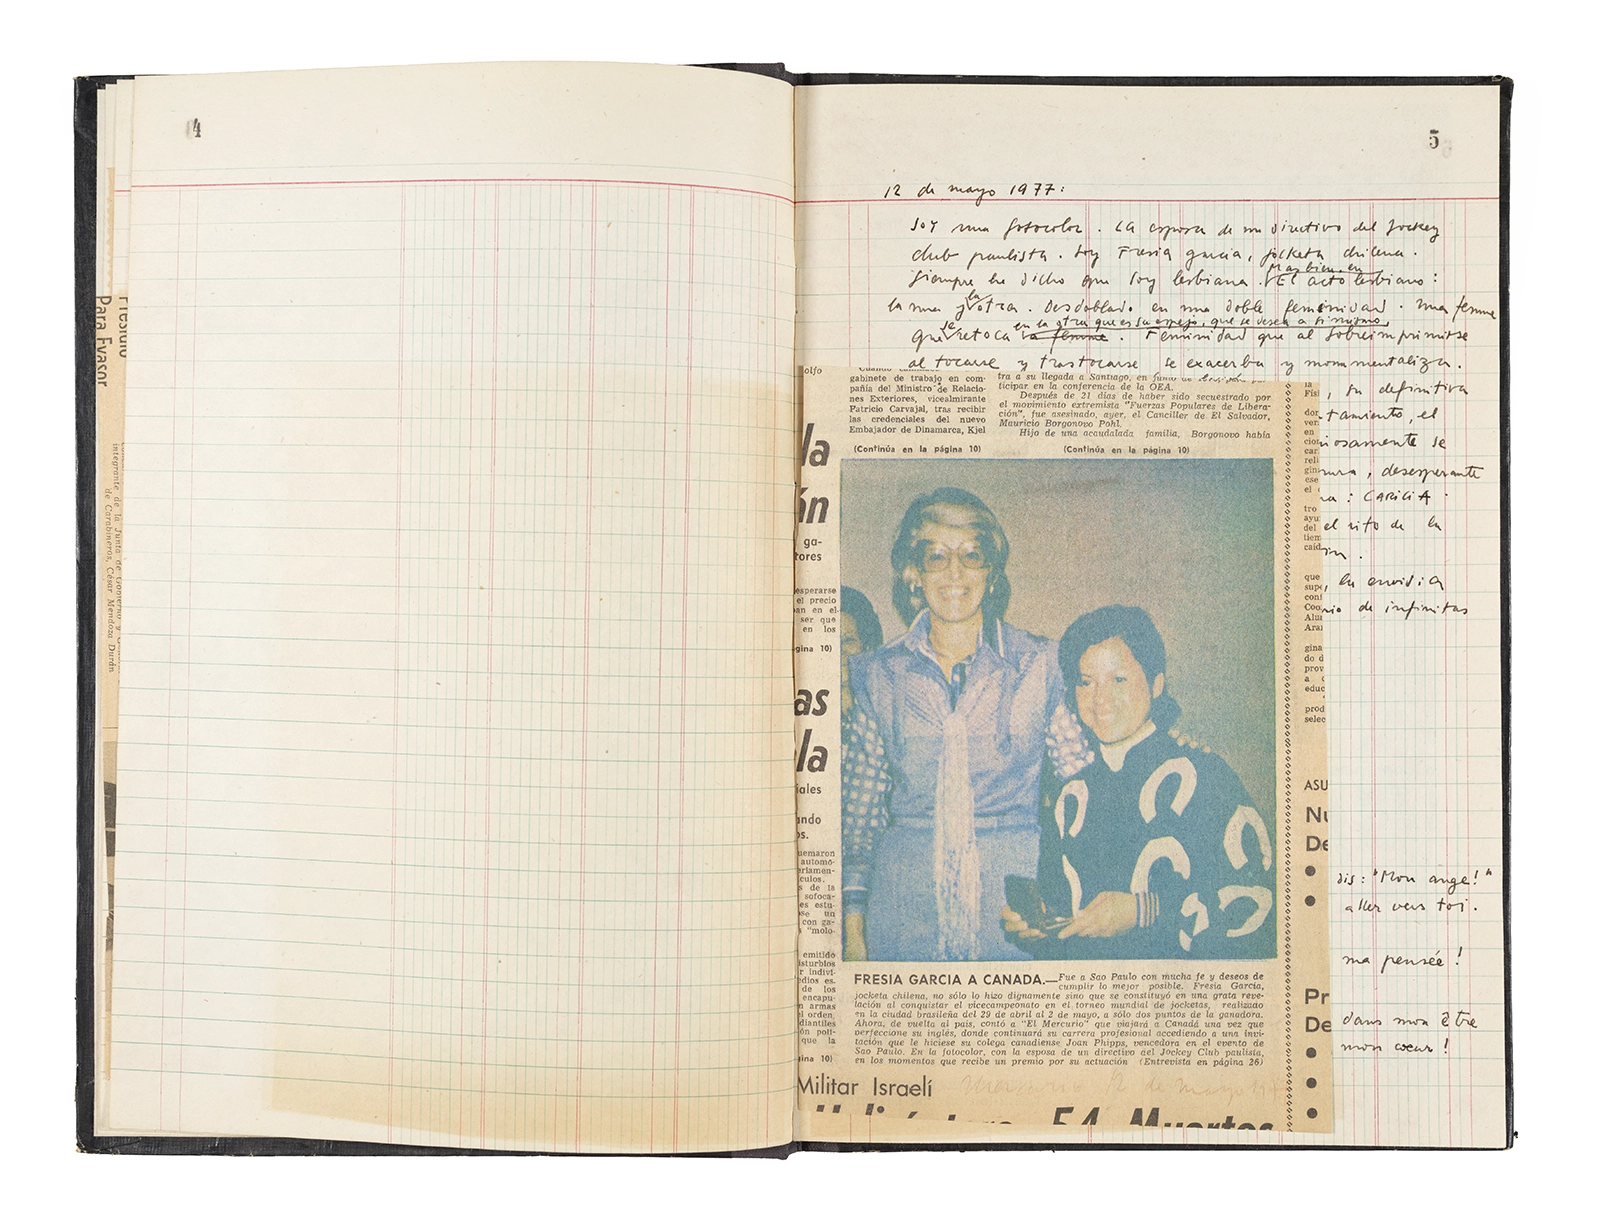 4
5
12 de mayo 1977:
Soy una fotocolor. La esposa de un directivo del Jockey
club paulista. Soy Fresia García, jocketa chilena.
Siempre he dicho que soy lesbiana. Más bien, en
El acto lesbiano:
la una y la otra. Desdoblado en una doble feminidad. Una femme
que se retoca en la otra que es su espejo, que se desea a si mismo
la femme. Feminidad que al sobreimprimirse
al tocarse y trastocarse se exacerba y monumentaliza.
, su definitiva
tamiento, el
osamente se
, desesperante
: CARICIA.
el rito de la
, la envidia
rio de infinitas
dis: "Mon ange!"
aller vers toi.
ma pensée!
dans mon être
mon cœur!
Presidio
Para Evasor
integrante de la Junta de Gobierno y
de Carabineros, César Mendoza Durán
olfo
gabinete de trabajo en com-
pañía del Ministro de Relacio-
nes Exteriores, vicealmirante
Patricio Carvajal, tras recibir
las credenciales del nuevo
Embajador de Dinamarca, Kjel
(Continúa en la página 10)
tra a su llegada a Santiago, en junio de
ticipar en la conferencia de la OEA.
Después de 21 días de haber sido secuestrado por
el movimiento extremista "Fuerzas Populares de Libera-
ción", fue asesinado, ayer, el Canciller de El Salvador,
Mauricio Borgonovo Pohl.
Hijo de una acaudalada familia, Borgonovo había
(Continúa en la página 10)
la
án
ga-
tores
esperarse
el precio
ban en el
ser que
en los
gina 10)
as
ala
iales
ando
os.
uemaron
automó-
erlamen-
culos.
s de la
sofoca-
es estu-
se un
con ga-
"molo-
emitido
isturbios
r indivi-
edios es.
de los
encapu-
n armas
el orden,
diantiles
ón polí-
que la
gina 10)
FRESIA GARCIA A CANADA.—Fue a Sao Paulo con mucha fe y deseos de
cumplir lo mejor posible. Fresia García,
jocketa chilena, no sólo lo hizo dignamente sino que se constituyó en una grata reve-
lación al conquistar el vicecampeonato en el torneo mundial de jocketas, realizado
en la ciudad brasileña del 29 de abril al 2 de mayo, a sólo dos puntos de la ganadora.
Ahora, de vuelta al país, contó a "El Mercurio" que viajará a Canadá una vez que
perfeccione su inglés, donde continuará su carrera profesional accediendo a una invi-
tación que le hiciese su colega canadiense Joan Phipps, vencedora en el evento de
Sao Paulo. En la fotocolor, con la esposa de un directivo del Jockey Club paulista,
en los momentos que recibe un premio por su actuación (Entrevista en página 26)
Militar Israelí
12 de mayo
54 Muertos
la
Fisi
dor
ver
en
cion
car
reli
gin
ese
el
tro
ayu
del
tiem
caid
que
supe
conf
Coo
Alu
Ara
gina
do d
prov
a
educ
prod
selec
ASU
Nu
De
Pr
De